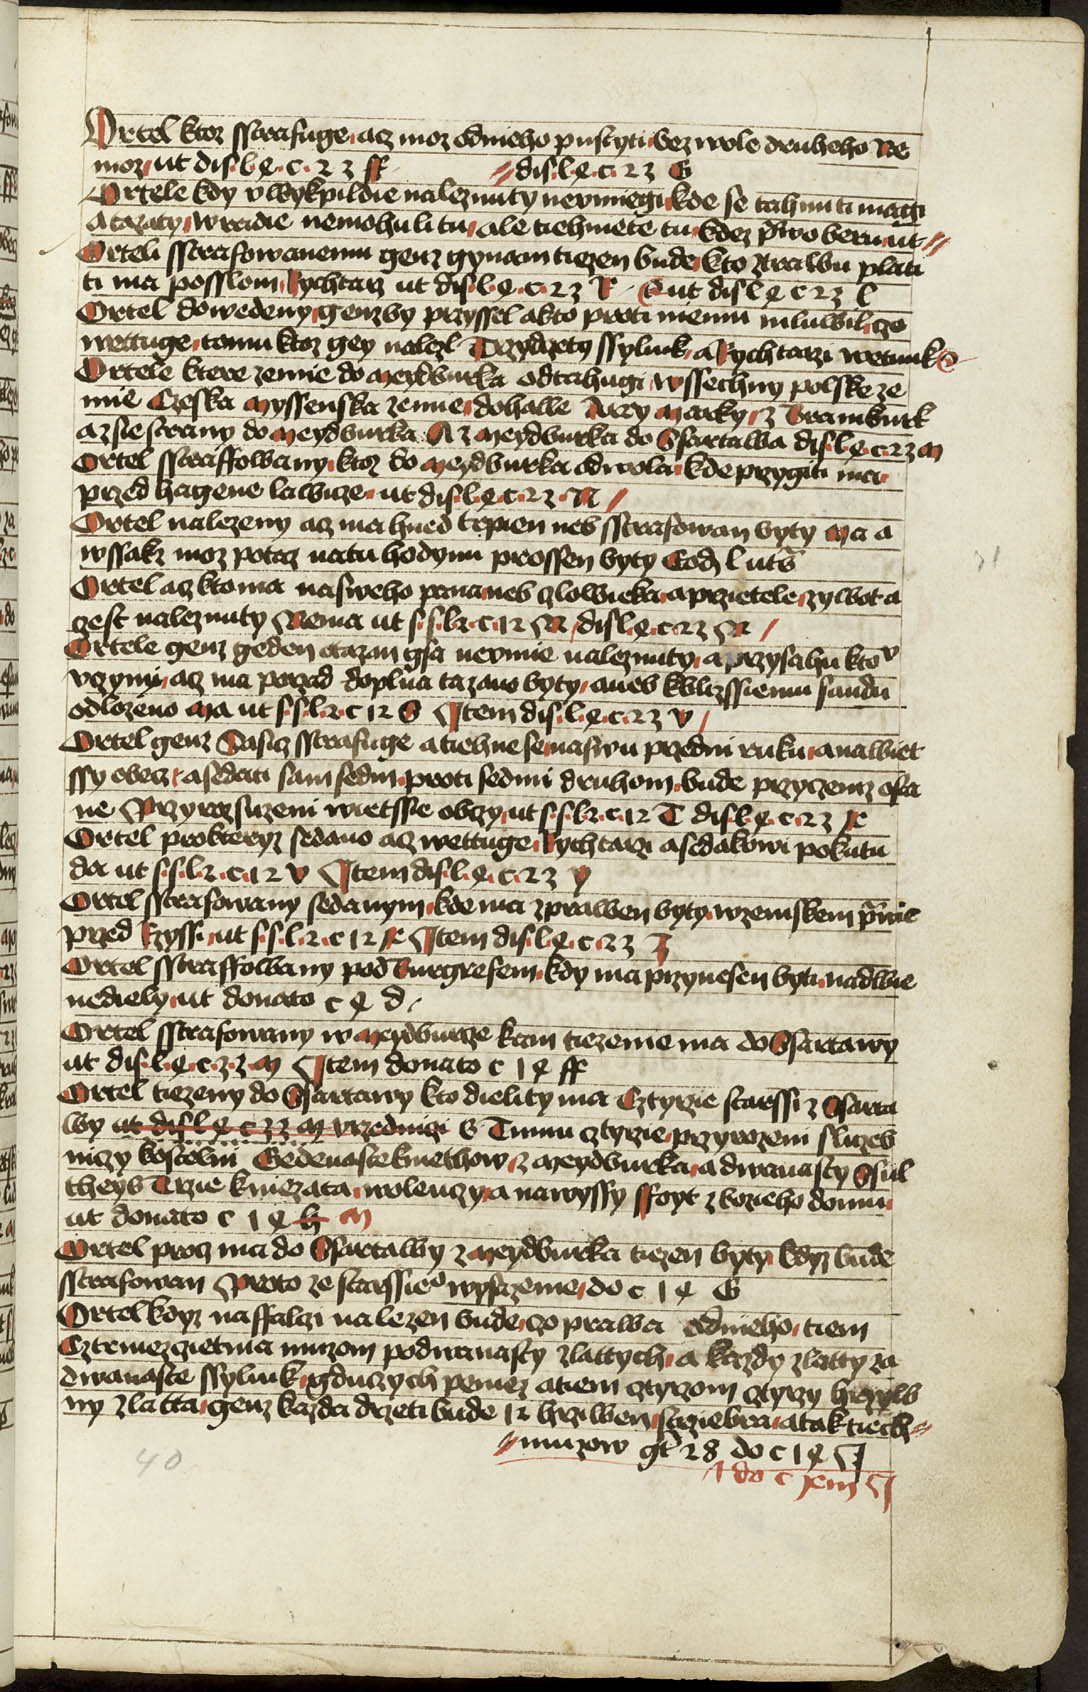 Ortel ktoz sstrafuge, az moz odnieho pustyti, bez wole druheho Ne
moz, ut dis. l. 4. c. 23 ff
// dis. l. 4. c. 23 G
Ortele kdy v wykpildie naleznuty neumiegi, kde se tahnuti magi
A tazaty, w radie nemohuli tu, ale tiehniete tu, kdez prwo beru, ut //
Orteli sstrafowanemu genz gynam tiezen bude, kto strawu plati
ti ma posslom, Rychtarz ut dis. l. 4. c. 23 K ut dis l 4 c 23 l
Ortel dowedeny, genz by przyssel, a kto proti niemu mluwil, zo
wettuge, tomu ktoz gey nalezl Trzydzety ssylink, a Rychtarzi wetunk
Ortele ktere zemie do Meydburka odtahugi wssechny polske ze
mie Czeska Myssenska zemie, do halle Stary Marky, z Bramburk
az sie strany do Meydburka. A z Meydburka do Ssartawa dis. l. 4. c. 23 m
Ortel sstraffowany, ktoz do Meydburka odwola, kde przygiti ma,
przed hagene lawicze, ut dis. l. 4 c. 23. N /
Ortel nalezeny az ma hned trpien neb sstrafowan byty Ma a
wssakz moz potaz na tu hodynu prossen byty
Ortel az kto ma na sweho pana neb czlowieka, a przietele, zywot a
zest naleznuty Nema ut s. s. l. 2. c. 12 M, dis l. 4. c. 23 M /
Ortele genz geden otazan gsa neumie naleznuty, a przysahu kto
vczyni, az ma porzad doplna tazano byty, aneb k blizssiemu saudu
odlozeno Ma ut s. s. l. 2. c 12 S Item dis. l. 4. c. 23 v /
Ortel genz Sasiz sstrafuge a tiehne se na swu przedni ruku, a na wiet
ssy obecz, a sedati sam sedm, proti sedmi druhom, bude przyczenz osta
ne, Przy rozsuzeni wietssie obczy, ut s. s. l. 2. c. 12 T dis. l. 4. c. 23 X
Ortel pro kteryz sedano az wettuge, Rychtarzi a sedakowi pokutu
da ut s. s. l. 2. c. 12 v Item dis. l. 4. c. 23 y
Ortel sstrafowany sedanym, kde ma zprawen byty, w zemskem prawie
przed Rzyssi, ut s. s. l. 2. c 12 X Item dis. l. 4. c. 23 Z
Ortel sstraffowany pod Burgrefem, kdy ma przynesen byti, na dwie
nediely, ut donato c 4 d.
Ortel sstrafowany w Meydburcze kam tiezenie ma do Ssartawy
ut dis. l. 4. c. 23. m Item donato c 1 4 ff
Ortel tiezeny do Ssartawy kto dielity ma Cztyrzie starssi z Ssarta
wy ut dis l 4 c 23 m vrzednigi G Tumu cztyrzie, przyrozeni sluzeb
niczy kostelni Gedenaste kmethow, z Meydburka, a dwanasty Ssul
theys Trzie kniezata, wolenczy, a nawyssy ffoyt z bozieho domu,
ut donato c 1 4 h m
Ortel procz ma do Ssartawy z Meydburka tiezen byty, kdyz bude
sstrafowan Proto ze starssieo wysazenie, do c 1 4 G
Ortel kdyz na ffalczi nalezen bude, zo prawa odnieho, tiem
Cztrmezcietma muzom po dwanasty zlattych, a kazdy zlatty za
dwanaste ssylink, gduczych peniez a tiem cztyrzom cztyrzy hrzyw
ny zlatta, genz kazda drzeti bude 12 hrziwen, strziebra, a tak tiech //
// muzow gt 28 do c 1 4
do c
40